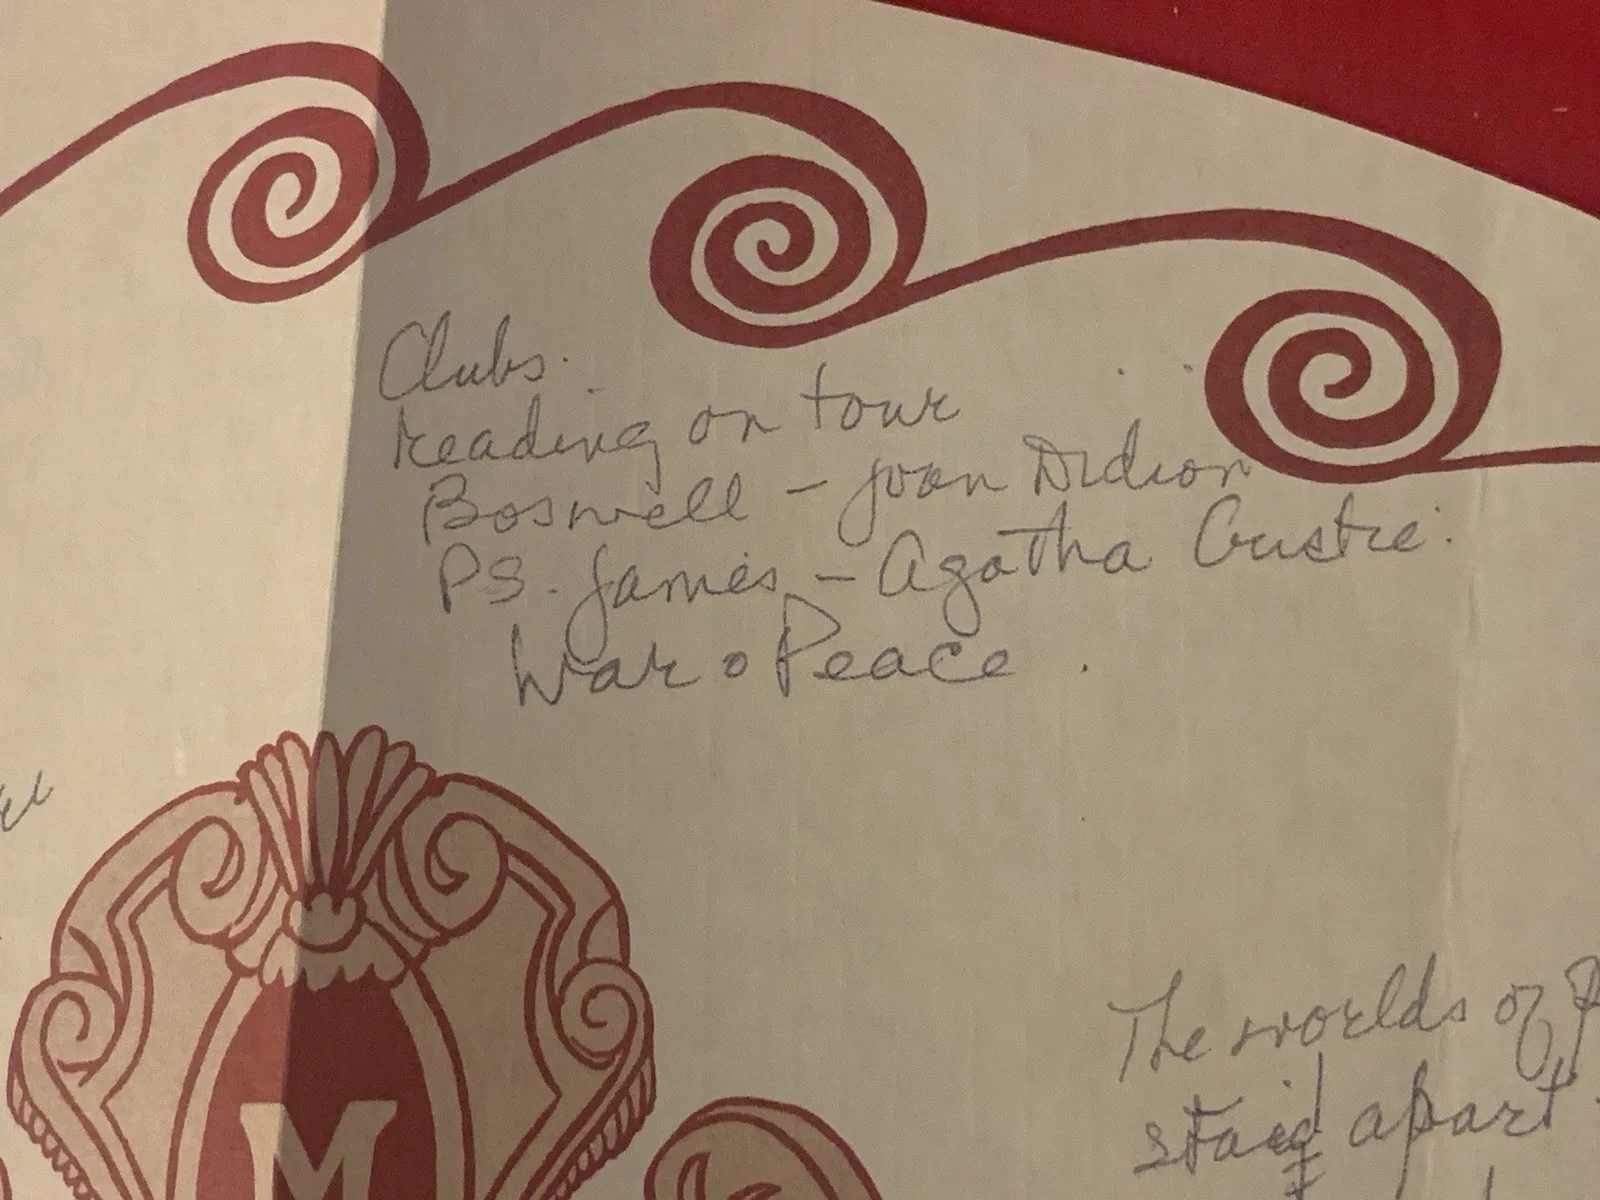 Clubs.
reading on tour
Boswell – Joan Didion
P.S. James – Agatha Cristie.
War & Peace.
M
The worlds of
staid apart